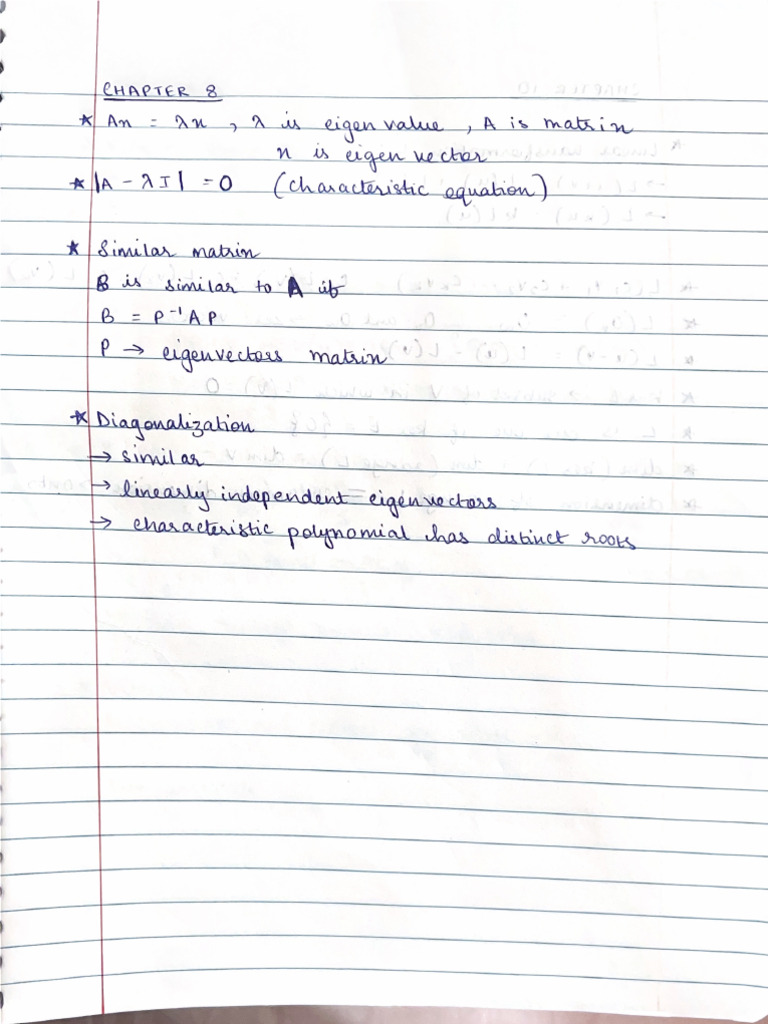 CHAPTER 8
* Ax = λx , λ is eigen value , A is matrix
x is eigen vector
* |A - λI| = 0 (characteristic equation)
* Similar matrix
B is similar to A if
B = P⁻¹AP
P → eigenvectors matrix
* Diagonalization
→ similar
→ linearly independent eigenvectors
→ characteristic polynomial has distinct roots